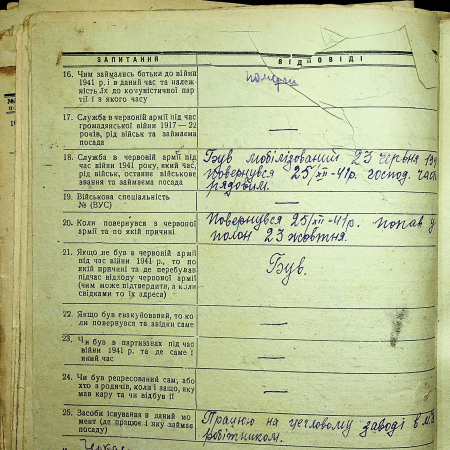 ЗАПИТАННЯ
ВІДПОВІДІ
16. Чим займались батьки до війни
1941 р. і в даний час та належ-
ність їх до комуністичної пар-
тії і з якого часу
померли
17. Служба в червоній армії під час
громадянської війни 1917—22
років, рід військ та займаєма
посада
—
18. Служба в червоній армії під
час війни 1941 року, який час,
рід військ, останнє військове
звання та займаєма посада
Був мобілізований 23 червня 194
повернувся 25/XII-41р. господ. част
рядовим.
19. Військова спеціальність
№ (ВУС)
—
20. Коли повернувся з червоної
армії та по якій причині
Повернувся 25/XII-41р. попав у
полон 23 жовтня.
21. Якщо не був в червоній армії
під час війни 1941 р., то по
якій причині та де перебував
підчас відходу червоної армії
(чим може підтвердити, а коли
свідками то їх адреса)
Був.
22. Якщо був евакуйований, то ко-
ли повернувся та звідки саме
—
23. Чи був в партизанах під час
війни 1941 р. та де саме і
який час
—
24. Чи був репресований сам, або
хто з родичів, коли і защо, яку
мав кару та чи відбув її
—
25. Засоби існування в даний мо-
мент (де працює і яку займає
посаду)
Працюю на цегловому заводі в м.
робітником.